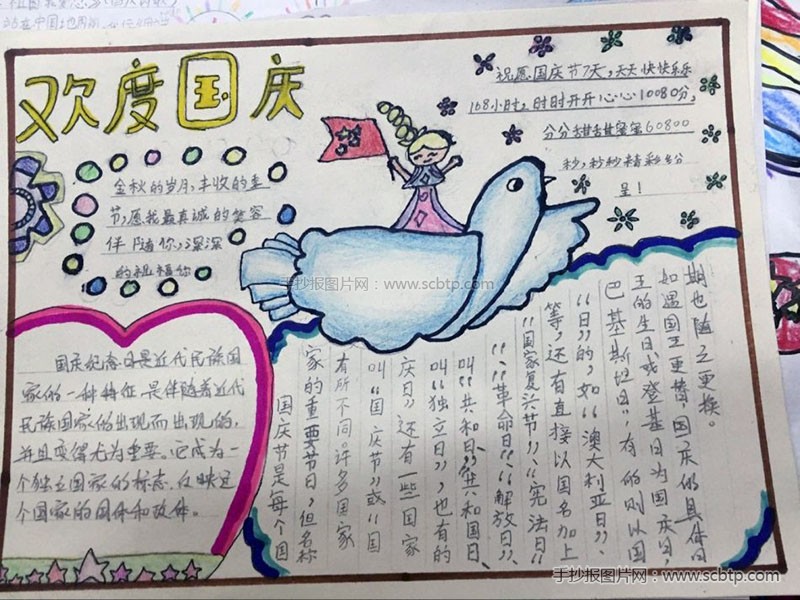 欢度国庆
祝愿国庆节7天,天天快快乐乐
168小时,时时开开心心10080分,
分分甜甜蜜蜜60800
秒,秒秒精彩纷
呈!
金秋的岁月,丰收的季
节,愿我最真诚的笑容
伴随你,深深
的祝福你
手抄报图片网:www.scbtp.com
国庆纪念日是近代民族国
家的一种特征,是伴随着近代
民族国家的出现而出现的,
并且变得尤为重要。它成为一
个独立国家的标志,反映这
个国家的国体和政体。
国庆节是每个国
家的重要节日,但名称
有所不同。许多国家
叫“国庆节”或“国
庆日”,还有一些国家
叫“独立日”,也有的
叫“共和日”“共和国日”、
“革命日”、“解放日”、
“国家复兴节”、“宪法日”
等,还有直接以国名加上
“日”的,如“澳大利亚日”、
巴基斯坦日”,有的则以国
王的生日或登基日为国庆日,
如遇国王更替,国庆的具体日
期也随之更换。
手抄报图片网:www.scbtp.com